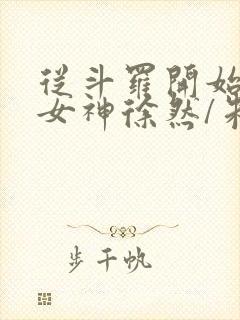 從斗羅開始
女神徐然/朱
步千帆